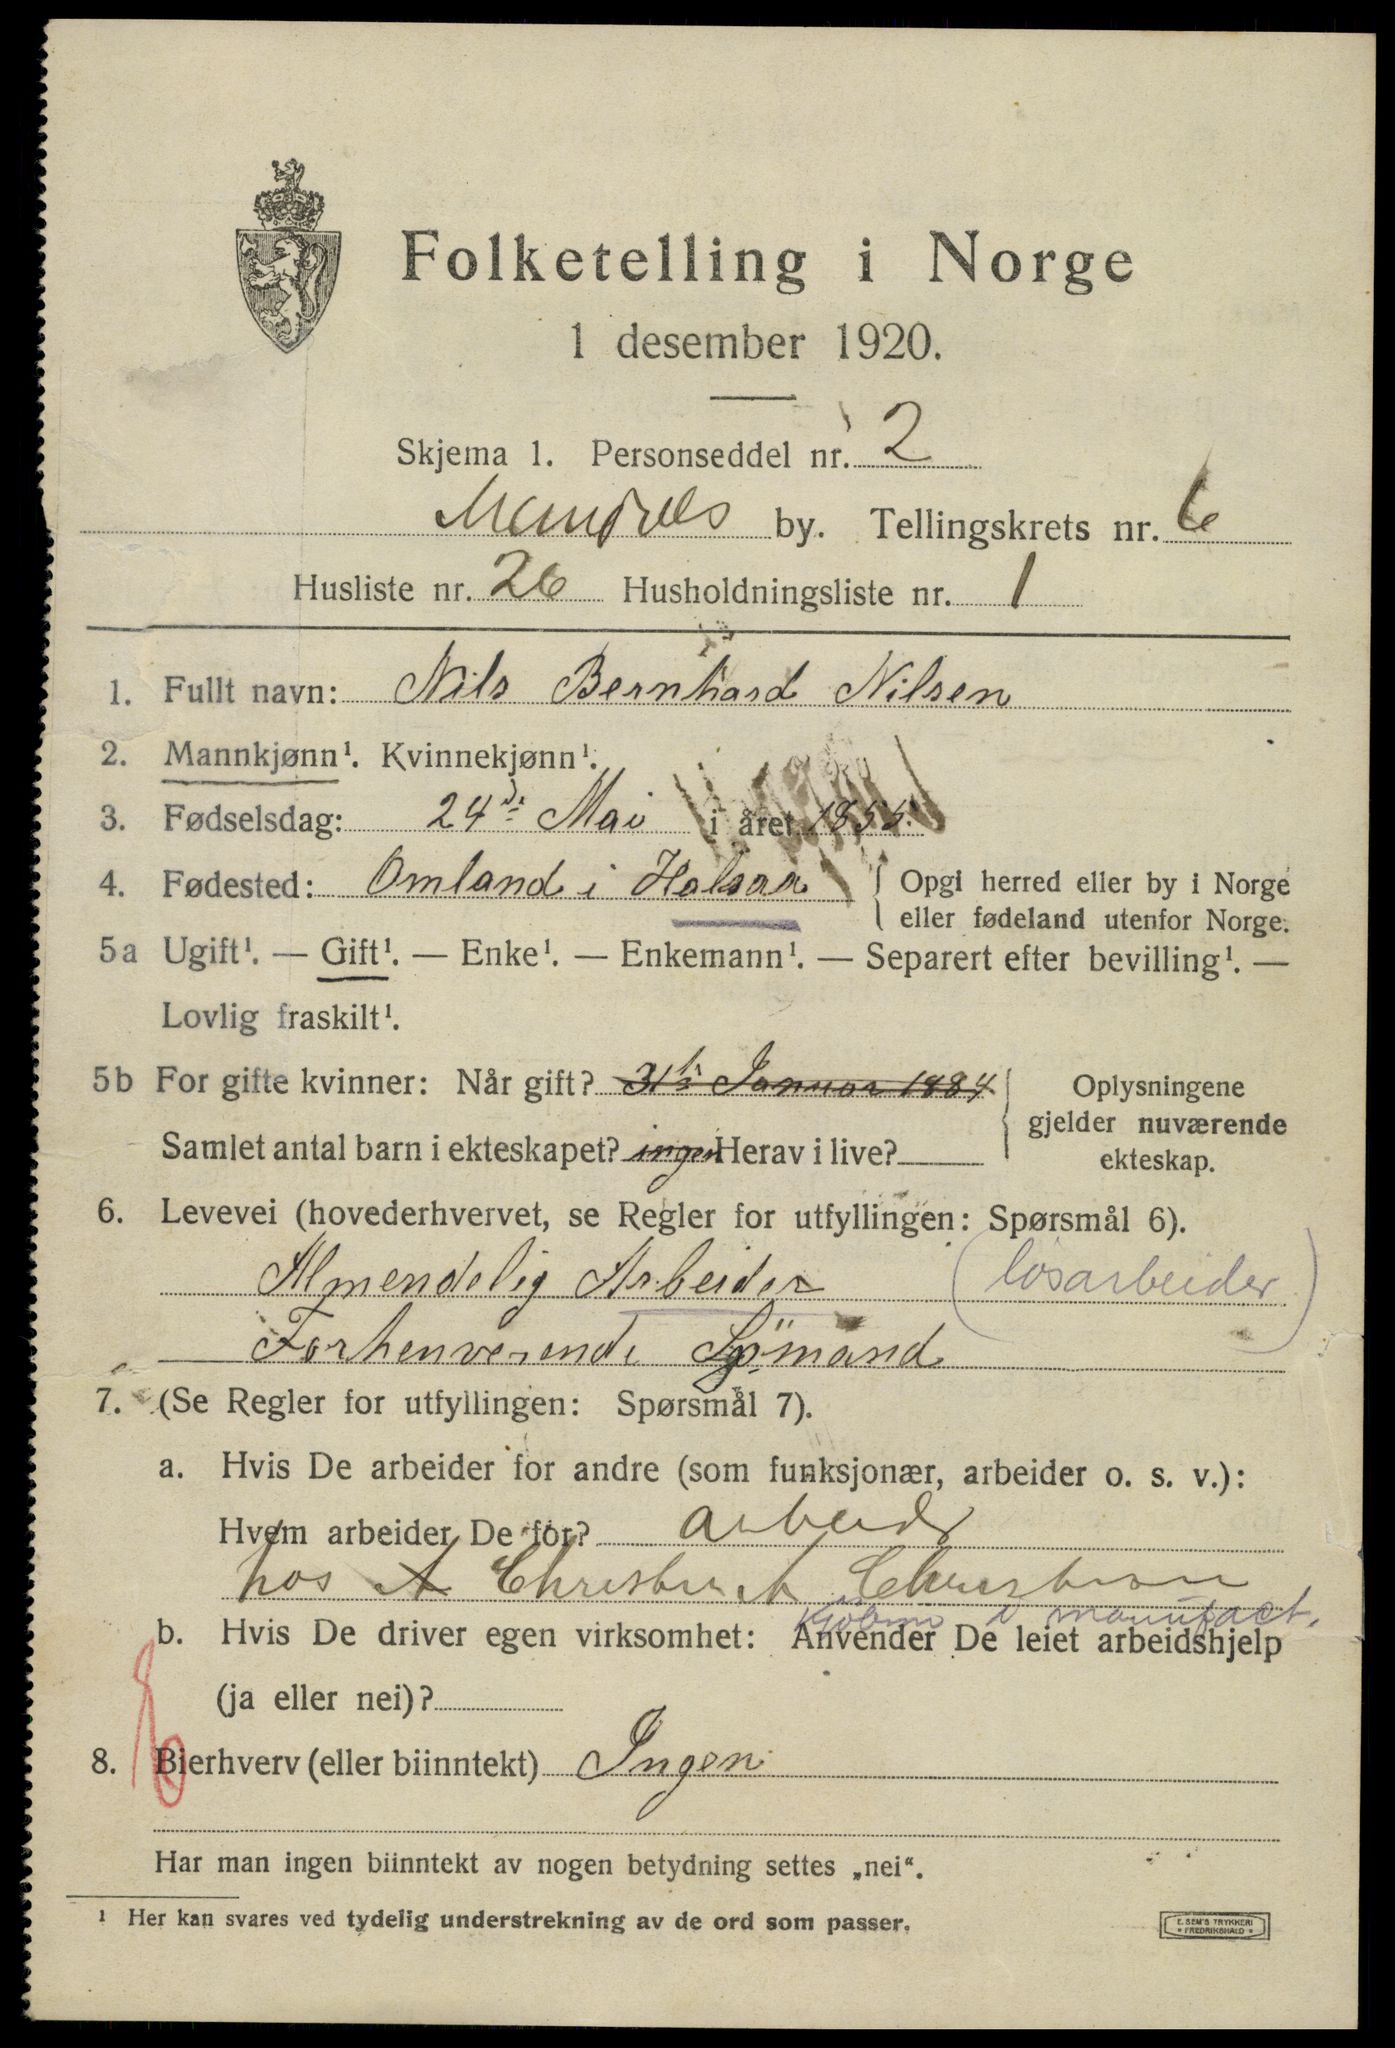 Folketelling i Norge
1 desember 1920.
Skjema 1. Personseddel nr. 2
Mandals by. Tellingskrets nr. 6
Husliste nr. 26 Husholdningsliste nr. 1
1. Fullt navn: Nils Bernhard Nilsen
2. Mannkjønn¹. Kvinnekjønn¹.
3. Fødselsdag: 24de Mai i året 1855.
4. Fødested: Omland i Halsaa { Opgi herred eller by i Norge
eller fødeland utenfor Norge.
5a Ugift¹. — Gift¹. — Enke¹. — Enkemann¹. — Separert efter bevilling¹. —
Lovlig fraskilt¹.
5b For gifte kvinner: Når gift? 31te Januar 1884
Samlet antal barn i ekteskapet? ingen Herav i live?
Oplysningene
gjelder nuværende
ekteskap.
6. Levevei (hovederhvervet, se Regler for utfyllingen: Spørsmål 6).
Almendelig Arbeider (løsarbeider)
Forhenverende Sømand
7. (Se Regler for utfyllingen: Spørsmål 7).
a. Hvis De arbeider for andre (som funksjonær, arbeider o. s. v.):
Hvem arbeider De for? arbeider
hos A Christ A Christian
Kjøbm i manufact.
b. Hvis De driver egen virksomhet: Anvender De leiet arbeidshjelp
(ja eller nei)?
8. Bierhverv (eller biinntekt) Ingen
Har man ingen biinntekt av nogen betydning settes „nei“.
¹ Her kan svares ved tydelig understrekning av de ord som passer.
E. SEM'S TRYKKERI
* FREDRIKSHALD *